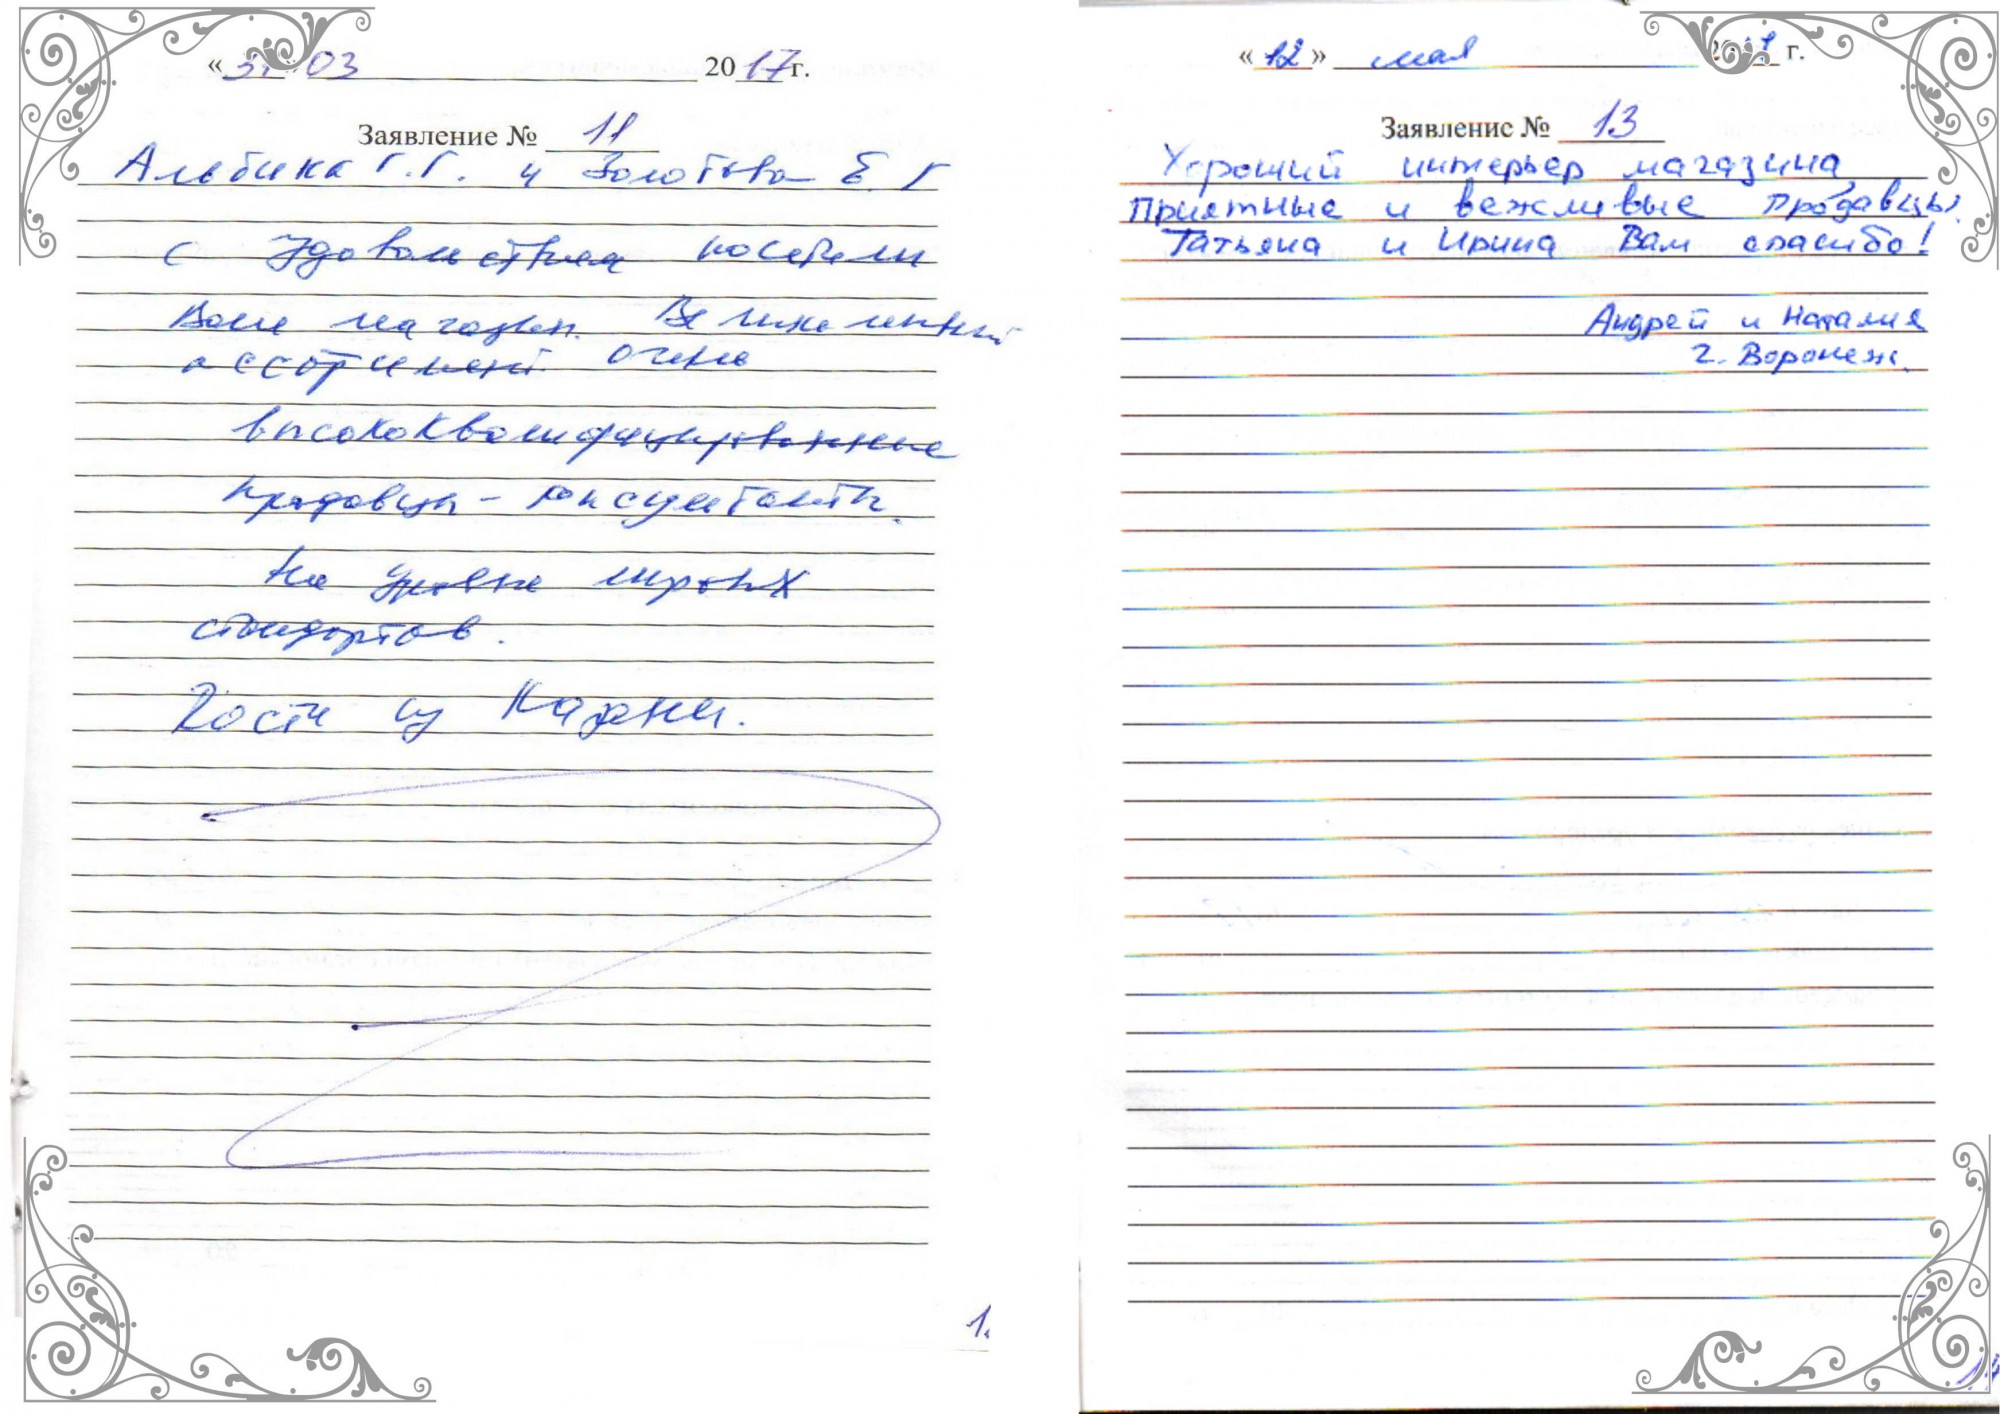 « 31 » 03 2017 г.
Заявление № 11
Альбина Г.Г. и Золотова Е. Г
с Удовольствием посетили
Ваш магазин. Великолепный
ассортимент. очень
высококвалифицированные
продавцы - консультанты.
На уровне мировых
стандартов.
Гости из Казани.
1.
« 12 » мая г.
Заявление № 13
Хороший интерьер магазина
Приятные и вежливые продавцы.
Татьяна и Ирина Вам спасибо!
Андрей и Наталия
г. Воронеж.